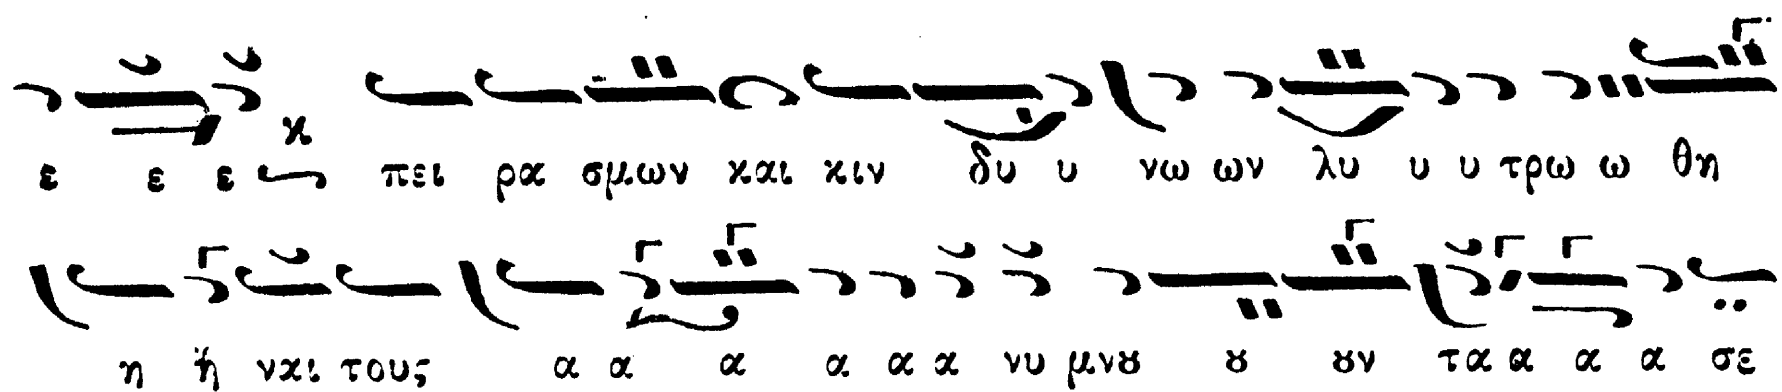 ε ε ε πει ρα σμων και κιν δυ υ νω ων λυ υ υ τρω ω θη
η ῆ ναι τους α α α α α α νυ μνȣ ȣ ȣν τα α α α σε